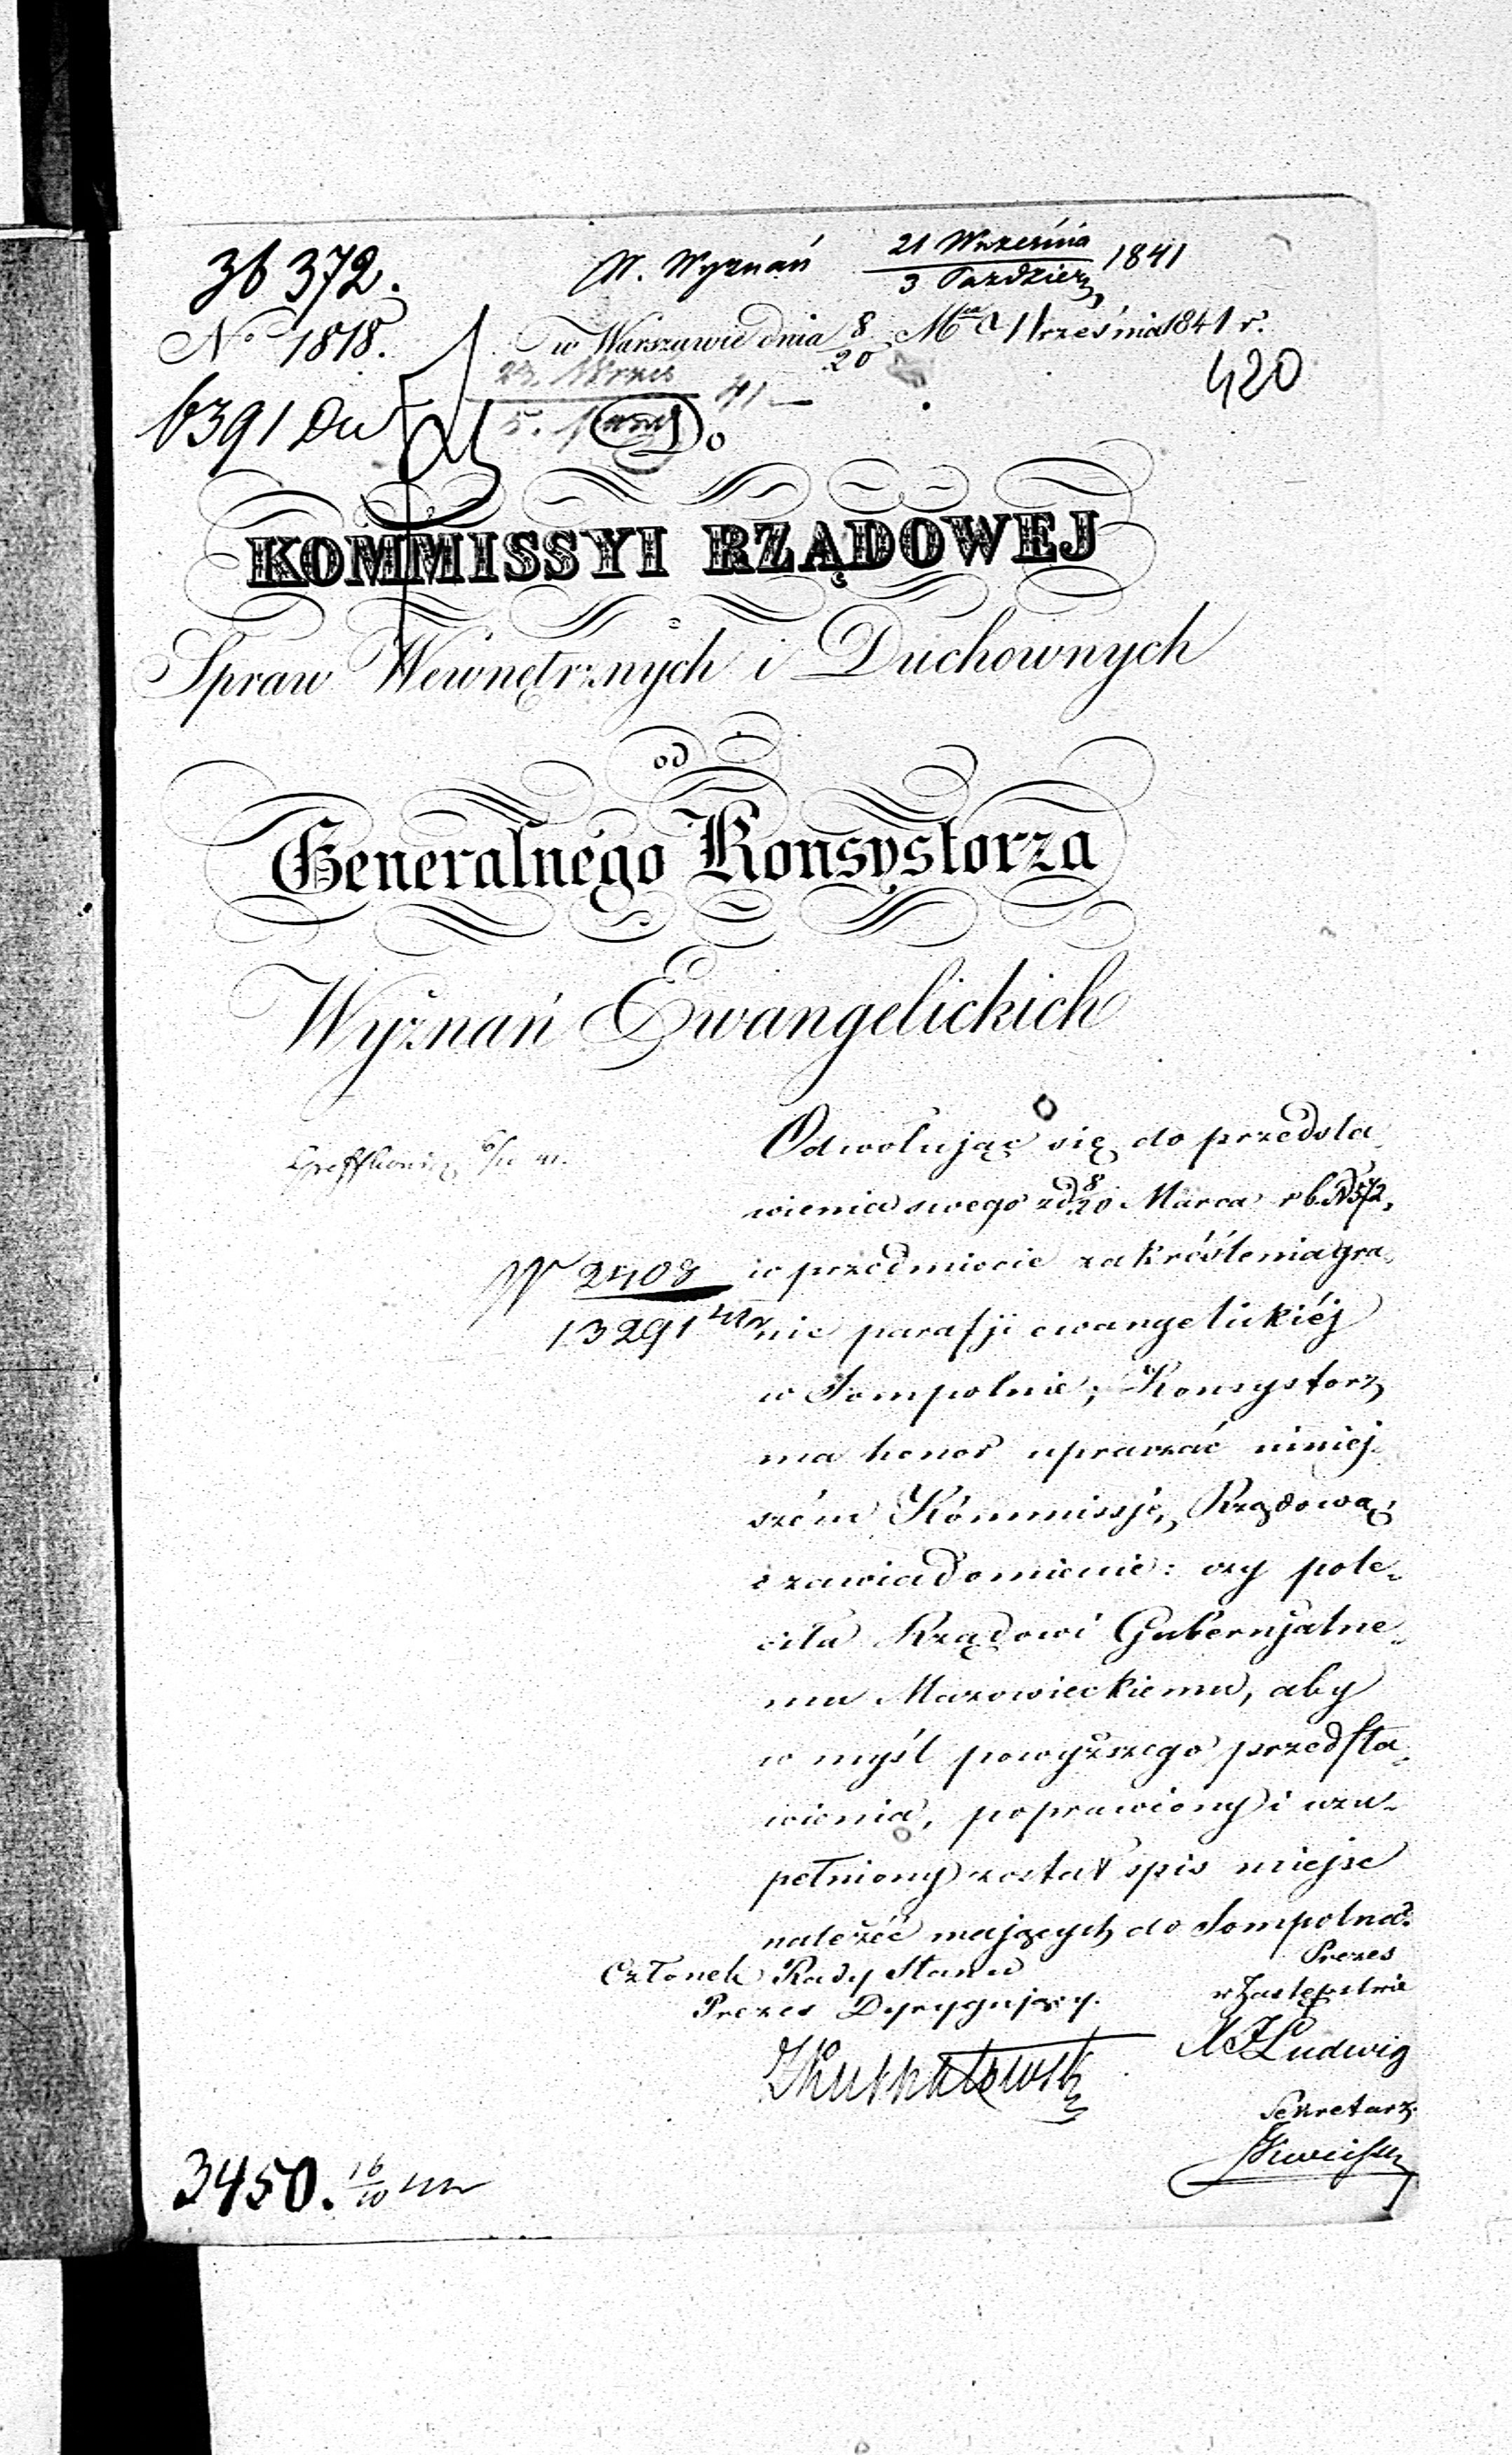 36372.
W. Wyznań 21 Września 1841
3 Paździer
No 1818.
w Warszawie dnia 8/20 Mca Września 1841 r.
420
23. Wrześ 41
5.
Do
KOMMISSYI RZĄDOWEJ
Spraw Wewnętrznych i Duchownych
od
Generalnego Konsystorza
Wyznań Ewangelickich
Odwołując się do przedsta-
wienia swego z d. 8/20 Marca r b. N 572,
w przedmiocie zakréślenia gra-
nic parafji ewangelickiéj
w Sompolnie; Konsystorz
ma honor upraszać niniej-
szém Kommissję Rządową
o zawiadomienie: czy pole-
ciła Rządowi Gubernjalne-
mu Mazowieckiemu, aby
w myśl powyższego przedsta-
wienia, poprawiony i uzu-
pełniony został spis miejsc
należéć mających do Sompolna.
N 2408
13291
Członek Rady Stanu
Prezes Dyrygujący.
Prezes
w Zastępstwie
Ludwig
Sekretarz
3450. 16/10